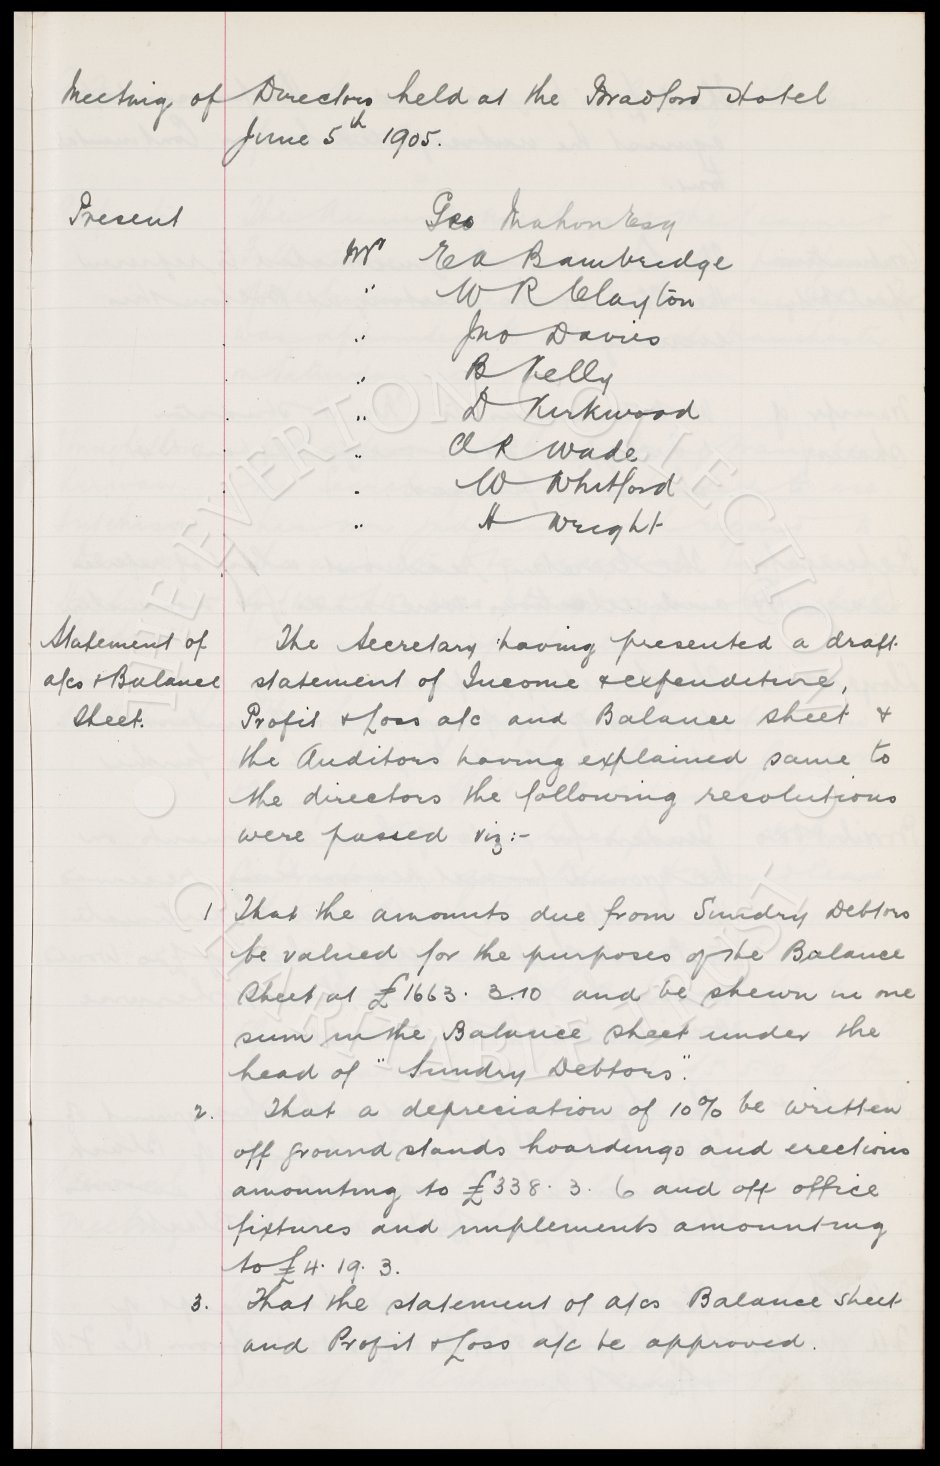 Meeting of Directors held at the Bradford Hotel
June 5th 1905.
Present
Geo Mahon Esq
Mr E A Bambridge
" W R Clayton
" Jno Davies
" B Kelly
" D Kirkwood
" A R Wade
" W Whitford
" H Wright
Statement of
a/cs & Balance
Sheet.
The Secretary having presented a draft
statement of Income & expenditure,
Profit & Loss a/c and Balance sheet &
the Auditors having explained same to
the directors the following resolutions
were passed viz:-
1 That the amounts due from Sundry Debtors
be valued for the purposes of the Balance
Sheet at £1663. 3. 10 and be shewn in one
sum in the Balance sheet under the
head of "Sundry Debtors".
2. That a depreciation of 10% be written
off ground stands hoardings and erections
amounting to £338. 3. 6 and off office
fixtures and implements amounting
to £4. 19. 3.
3. That the statement of a/cs Balance sheet
and Profit & Loss a/c be approved.
THE EVERTON COLLECTION
CHARITABLE TRUST